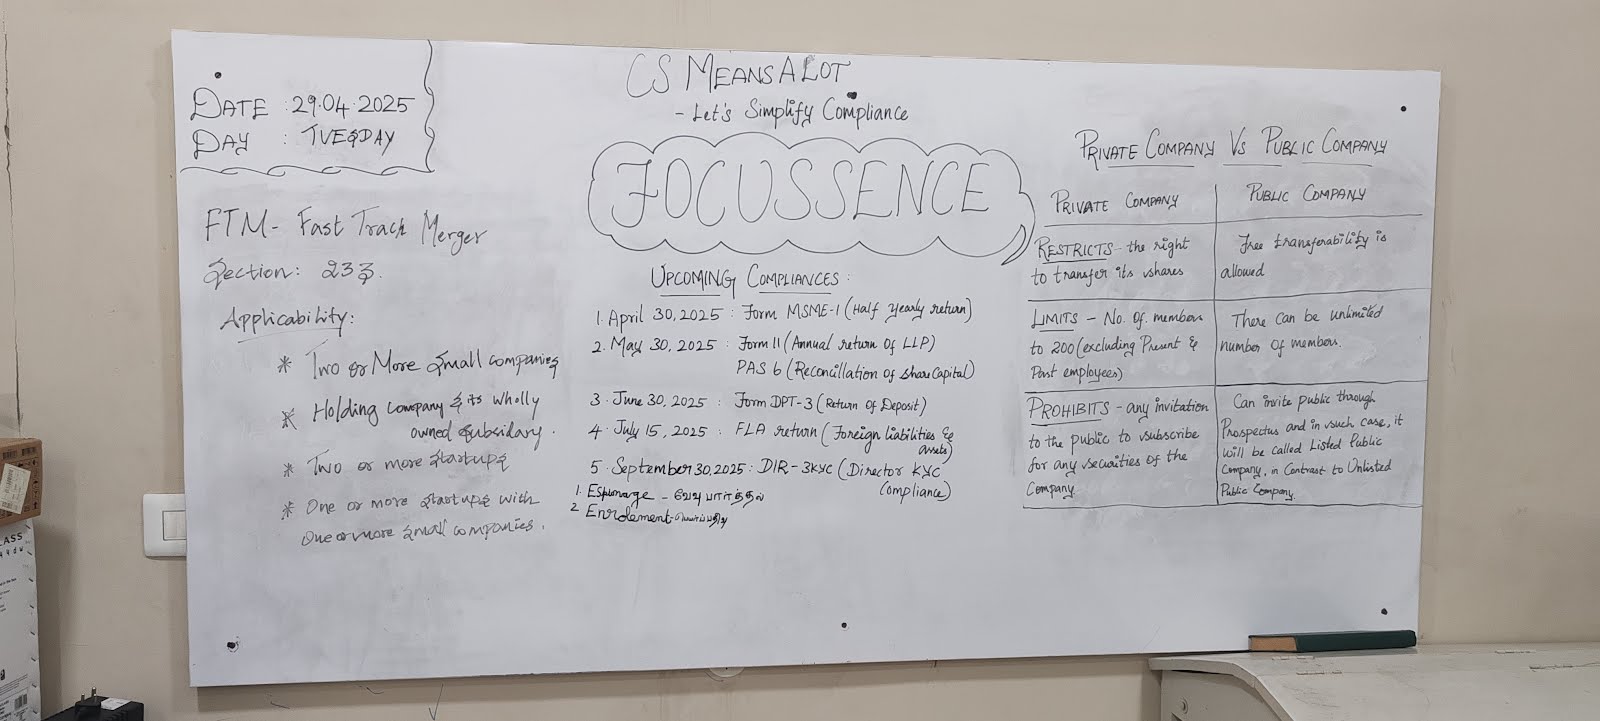 DATE : 29.04.2025
DAY : TUESDAY
CS MEANS A LOT
- Let's Simplify Compliance
FOCUSSENCE
FTM - Fast Track Merger
Section: 233.
Applicability:
* Two or More Small companies
* Holding Company & its wholly
owned subsidary.
* Two or more startups
* One or more startups with
One or more small companies.
UPCOMING COMPLIANCES:
1. April 30, 2025 : Form MSME-1 (Half Yearly return)
2. May 30, 2025 : Form 11 (Annual return of LLP)
PAS 6 (Reconcillation of share Capital)
3. June 30, 2025 : Form DPT-3 (Return of Deposit)
4. July 15, 2025 : FLA return (Foreign liabilities &
assets)
5. September 30, 2025: DIR-3KYC (Director KYC
Compliance)
1. Espionage -
2. Enrolement -
PRIVATE COMPANY VS PUBLIC COMPANY
PRIVATE COMPANY
PUBLIC COMPANY
RESTRICTS - the right
to transfer its shares
Free transferability is
allowed
LIMITS - No. of members
to 200 (excluding Present &
Past employees)
There can be unlimited
number of members.
PROHIBITS - any invitation
to the public to subscribe
for any securities of the
Company.
Can invite public through
Prospectus and in such case, it
will be called Listed Public
Company, in Contrast to Unlisted
Public Company.
CLASS